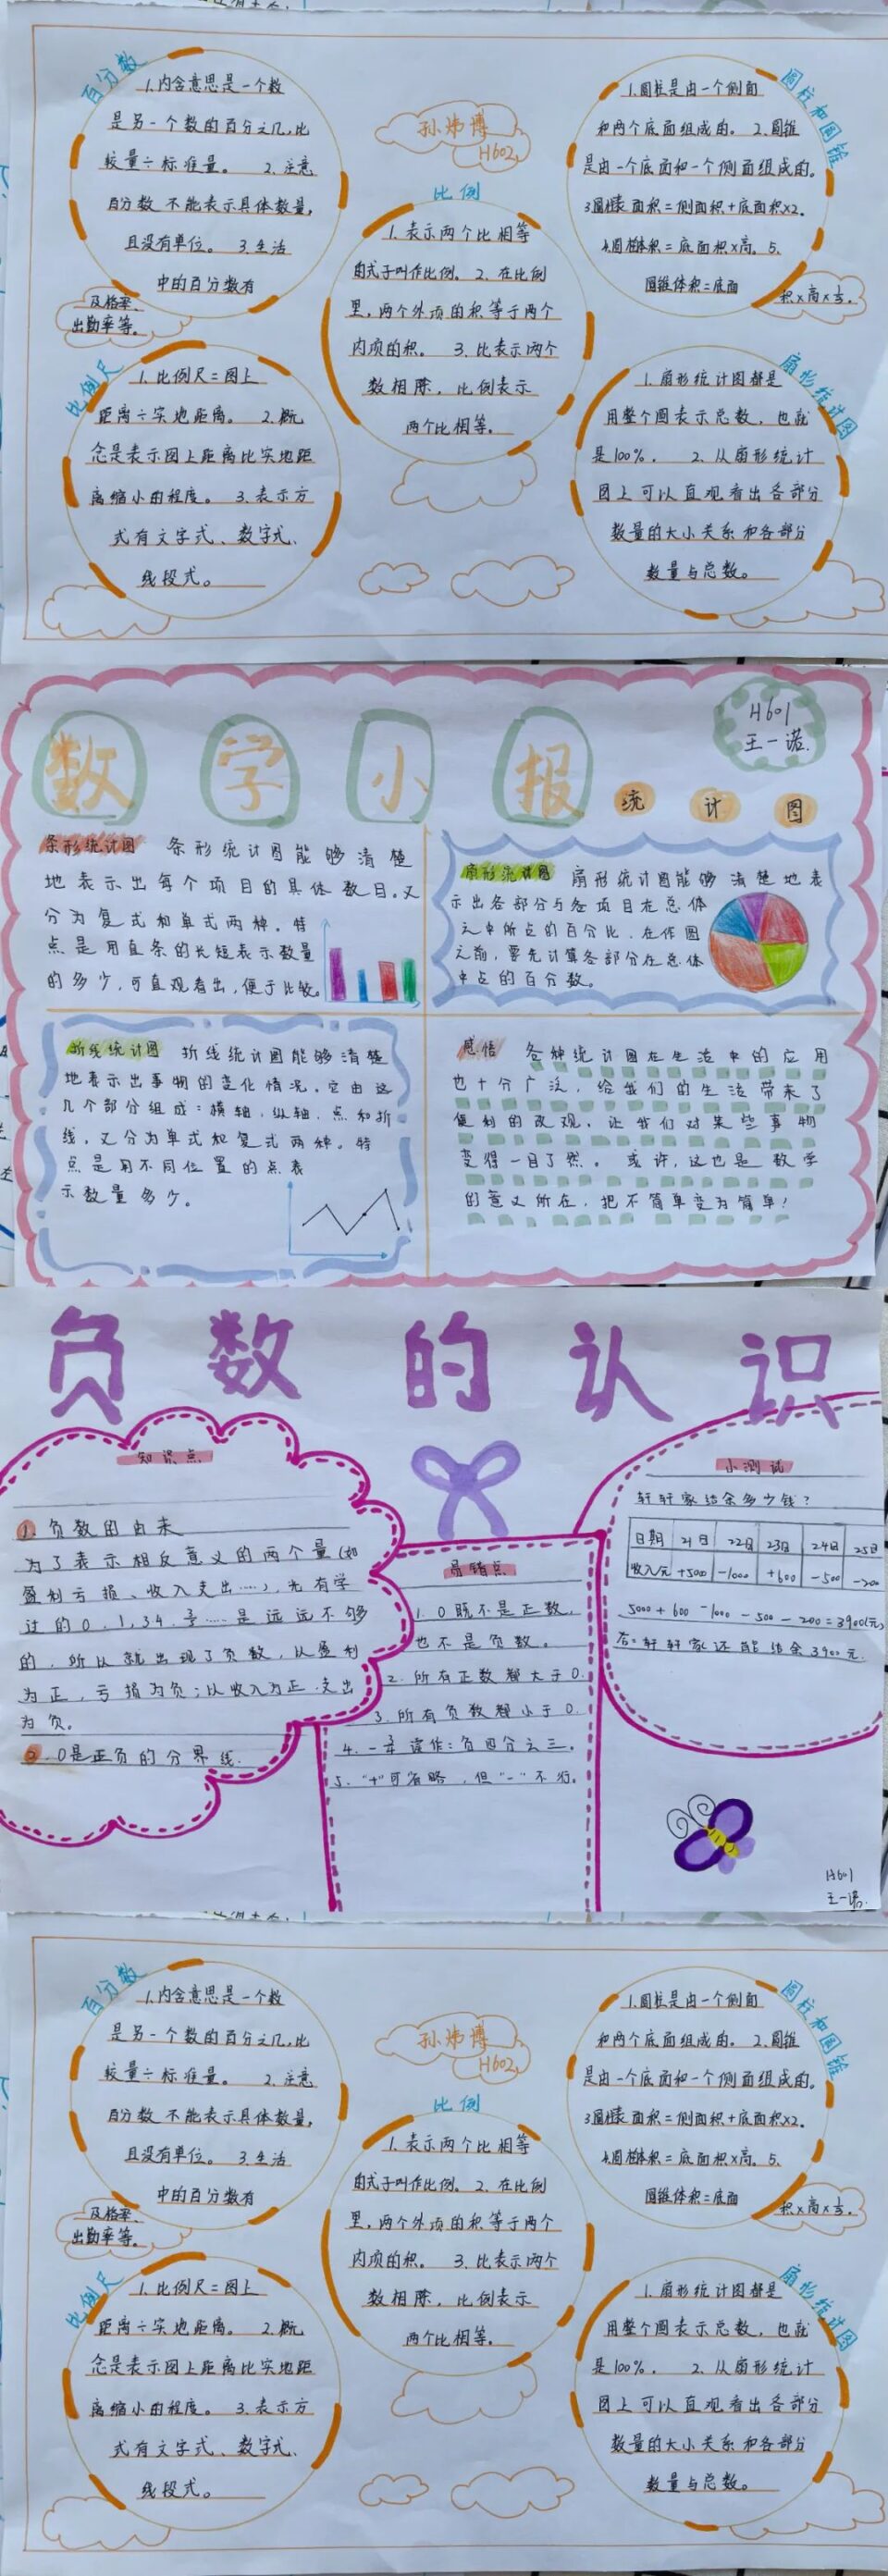 百分数
1.内含意思是一个数
是另一个数的百分之几,比
较量÷标准量。 2.注意
百分数不能表示具体数量,
且没有单位。 3.生活
中的百分数有
及格率、
出勤率等。
H602
比例
1.表示两个比相等
的式子叫作比例。 2.在比例
里,两个外项的积等于两个
内项的积。 3.比表示两个
数相除,比例表示
两个比相等。
圆柱和圆锥
1.圆柱是由一个侧面
和两个底面组成的。 2.圆锥
是由一个底面和一个侧面组成的。
3.圆柱表面积=侧面积+底面积×2。
4.圆柱体积=底面积×高。 5.
圆锥体积=底面
积×高×⅓。
比例尺
1.比例尺=图上
距离÷实地距离。 2.概
念是表示图上距离比实地距
离缩小的程度。 3.表示方
式有文字式、数字式、
线段式。
扇形统计图
1.扇形统计图都是
用整个圆表示总数,也就
是100%. 2.从扇形统计
图上可以直观看出各部分
数量的大小关系和各部分
数量与总数。
数学小报
统计图
H601
王一诺.
条形统计图 条形统计图能够清楚
地表示出每个项目的具体数目.又
分为复式和单式两种.特
点是用直条的长短表示数量
的多少,可直观看出,便于比较。
扇形统计图 扇形统计图能够清楚地表
示出各部分与各项目在总体
之中所占的百分比.在作图
之前,要先计算各部分在总体
中占的百分数。
折线统计图 折线统计图能够清楚
地表示出事物的变化情况.它由这
几个部分组成:横轴、纵轴、点和折
线.又分为单式和复式两种。特
点是用不同位置的点表
示数量多少。
感悟 各种统计图在生活中的应用
也十分广泛,给我们的生活带来了
便利的改观,让我们对某些事物
变得一目了然。或许,这也是数学
的意义所在,把不简单变为简单!
负数的认识
知识点
1.负数的由来
为了表示相反意义的两个量(如
盈利亏损、收入支出……),光有学
过的0,1,3.4, ……是远远不够
的.所以就出现了负数,从盈利
为正,亏损为负;以收入为正.支出
为负。
2.0是正负的分界线.
易错点
1.0既不是正数,
也不是负数。
2.所有正数都大于0.
3.所有负数都小于0.
4.-¾读作:负四分之三。
5."+"可省略,但"-"不行。
小测试
轩轩家结余多少钱?
日期 21日 22日 23日 24日 25日
收入/元 +5000 -1000 +600 -500 -200
5000+600-1000-500-200=3900(元)
答:轩轩家还能结余3900元.
H601
王一诺.
百分数
1.内含意思是一个数
是另一个数的百分之几,比
较量÷标准量。 2.注意
百分数不能表示具体数量,
且没有单位。 3.生活
中的百分数有
及格率、
出勤率等。
H602
比例
1.表示两个比相等
的式子叫作比例。 2.在比例
里,两个外项的积等于两个
内项的积。 3.比表示两个
数相除,比例表示
两个比相等。
圆柱和圆锥
1.圆柱是由一个侧面
和两个底面组成的。 2.圆锥
是由一个底面和一个侧面组成的。
3.圆柱表面积=侧面积+底面积×2。
4.圆柱体积=底面积×高。 5.
圆锥体积=底面
积×高×⅓。
比例尺
1.比例尺=图上
距离÷实地距离。 2.概
念是表示图上距离比实地距
离缩小的程度。 3.表示方
式有文字式、数字式、
线段式。
扇形统计图
1.扇形统计图都是
用整个圆表示总数,也就
是100%. 2.从扇形统计
图上可以直观看出各部分
数量的大小关系和各部分
数量与总数。